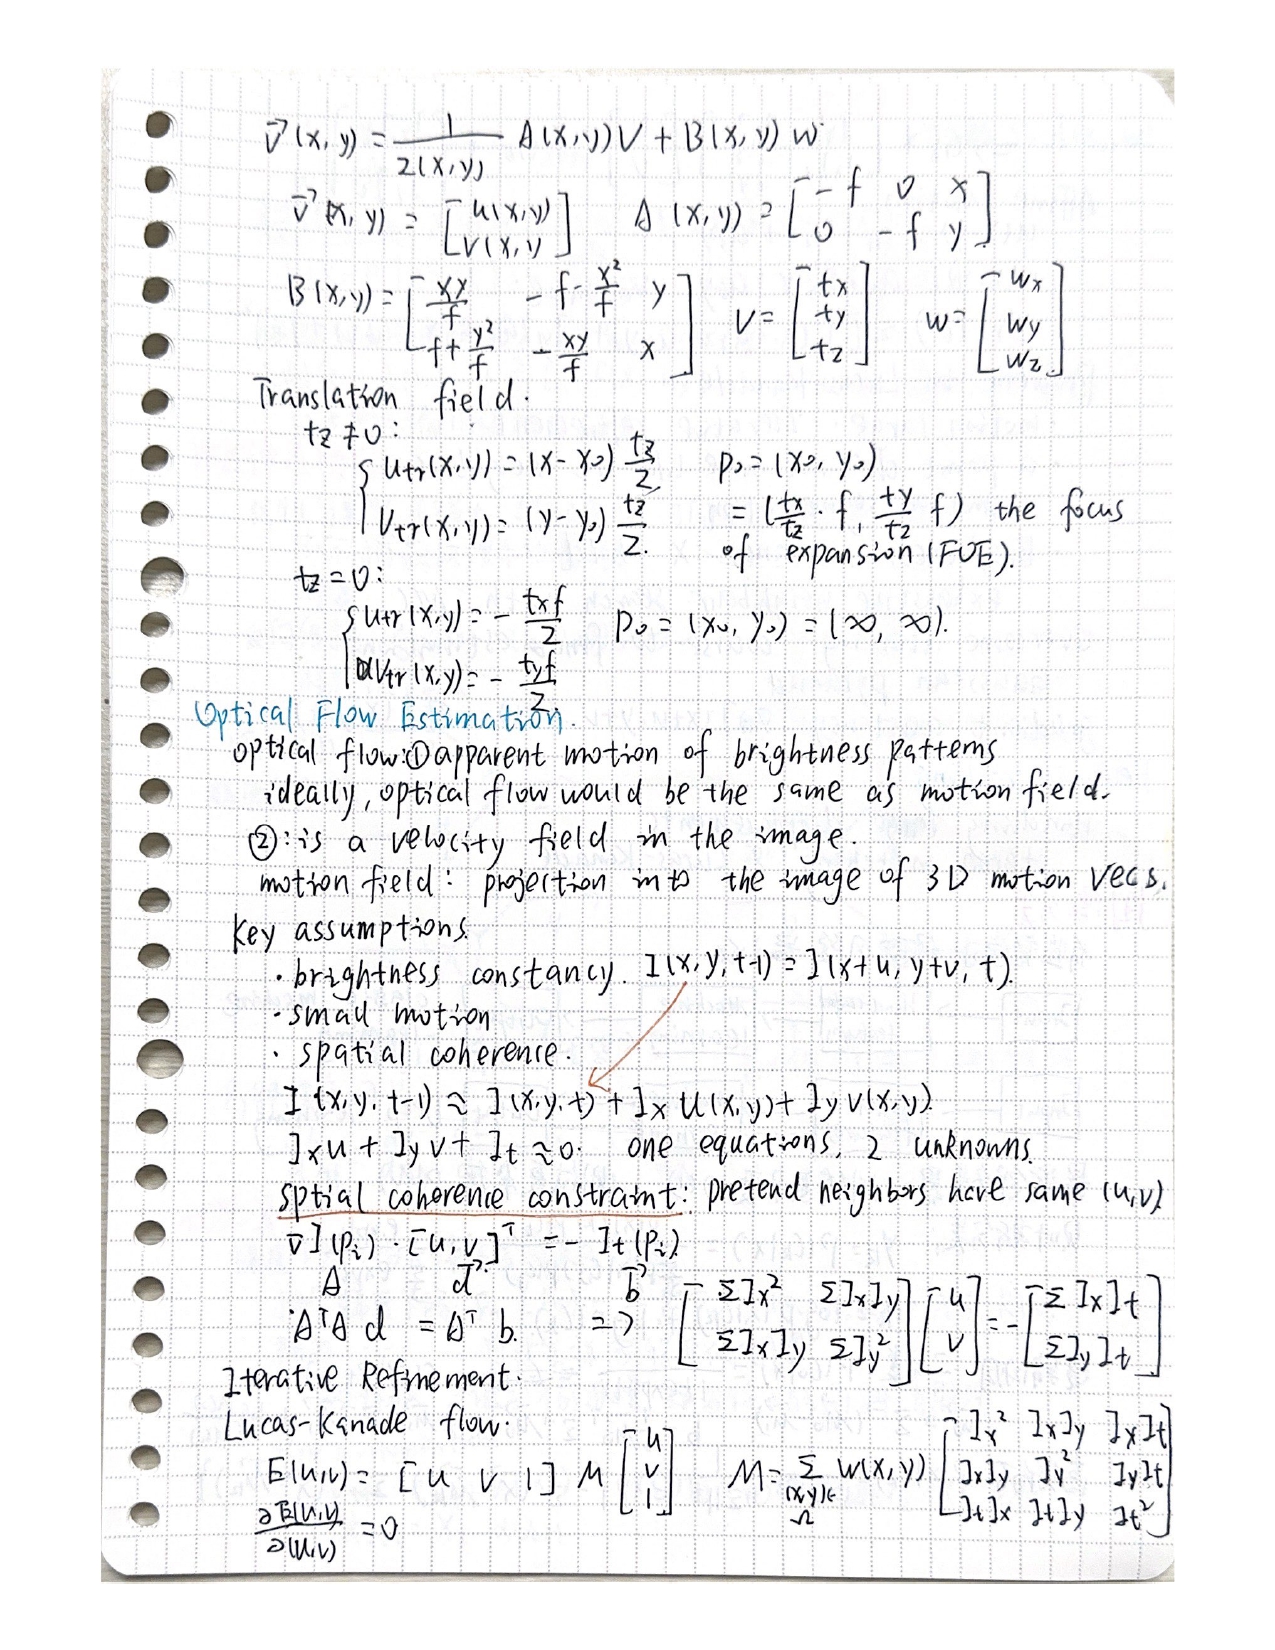 v⃗(x,y) = 1/Z(x,y) A(x,y)V + B(x,y) w
v⃗(x,y) = [u(x,y) v(x,y] A(x,y) = [-f 0 x; 0 -f y]
B(x,y) = [xy/f -f-x²/f y; f+y²/f -xy/f x] V = [tx ty tz] w = [wx wy wz]
Translation field.
tz ≠ 0:
{ utr(x,y) = (x-x0) tz/Z p0 = (x0, y0)
vtr(x,y) = (y-y0) tz/Z. = (tx/tz · f, ty/tz f) the focus
of expansion (FOE).
tz = 0:
{ utr(x,y) = - txf/Z p0 = (x0, y0) = (∞, ∞).
vtr(x,y) = - tyf/Z
Optical Flow Estimation.
optical flow: ① apparent motion of brightness patterns
ideally, optical flow would be the same as motion field.
②: is a velocity field in the image.
motion field: projection into the image of 3D motion vecs.
key assumptions.
· brightness constancy. I(x,y,t-1) = I(x+u, y+v, t).
· small motion
· spatial coherence.
I(x,y,t-1) ≈ I(x,y,t) + Ix u(x,y) + Iy v(x,y)
Ixu + Iyv + It ≈ 0. one equations, 2 unknowns.
sptial coherence constraint: pretend neighbors have same (u,v)
∇I(pi) · [u,v]ᵀ = - It(pi)
A d⃗ b⃗
AᵀA d = Aᵀ b. => [ΣIx² ΣIxIy; ΣIxIy ΣIy²] [u v] = - [ΣIxIt ΣIyIt]
Iterative Refinement.
Lucas-Kanade flow.
E(u,v) = [u v 1] M [u v 1] M = Σ(x,y)∈Ω w(x,y) [Ix² IxIy IxIt; IxIy Iy² IyIt; ItIx ItIy It²]
∂E(u,v)/∂(u,v) = 0